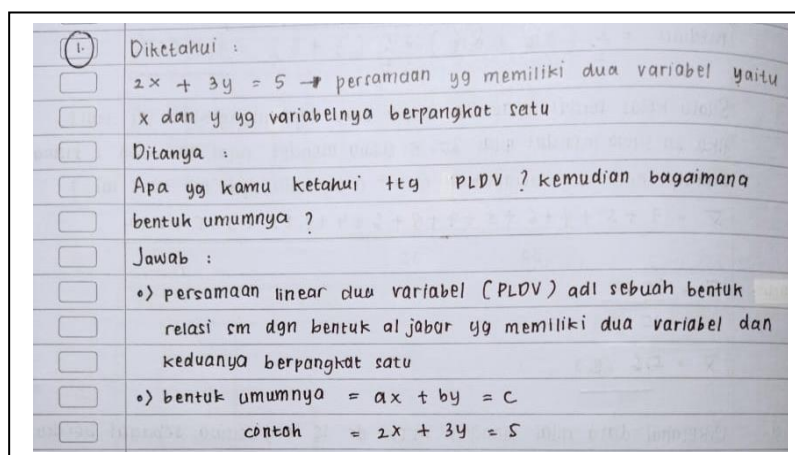 1. Diketahui :
2x + 3y = 5 → persamaan yg memiliki dua variabel yaitu
x dan y yg variabelnya berpangkat satu
Ditanya :
Apa yg kamu ketahui ttg PLDV ? kemudian bagaimana
bentuk umumnya ?
Jawab :
•) persamaan linear dua variabel (PLDV) adl sebuah bentuk
relasi sm dgn bentuk aljabar yg memiliki dua variabel dan
keduanya berpangkat satu
•) bentuk umumnya = ax + by = c
contoh = 2x + 3y = 5